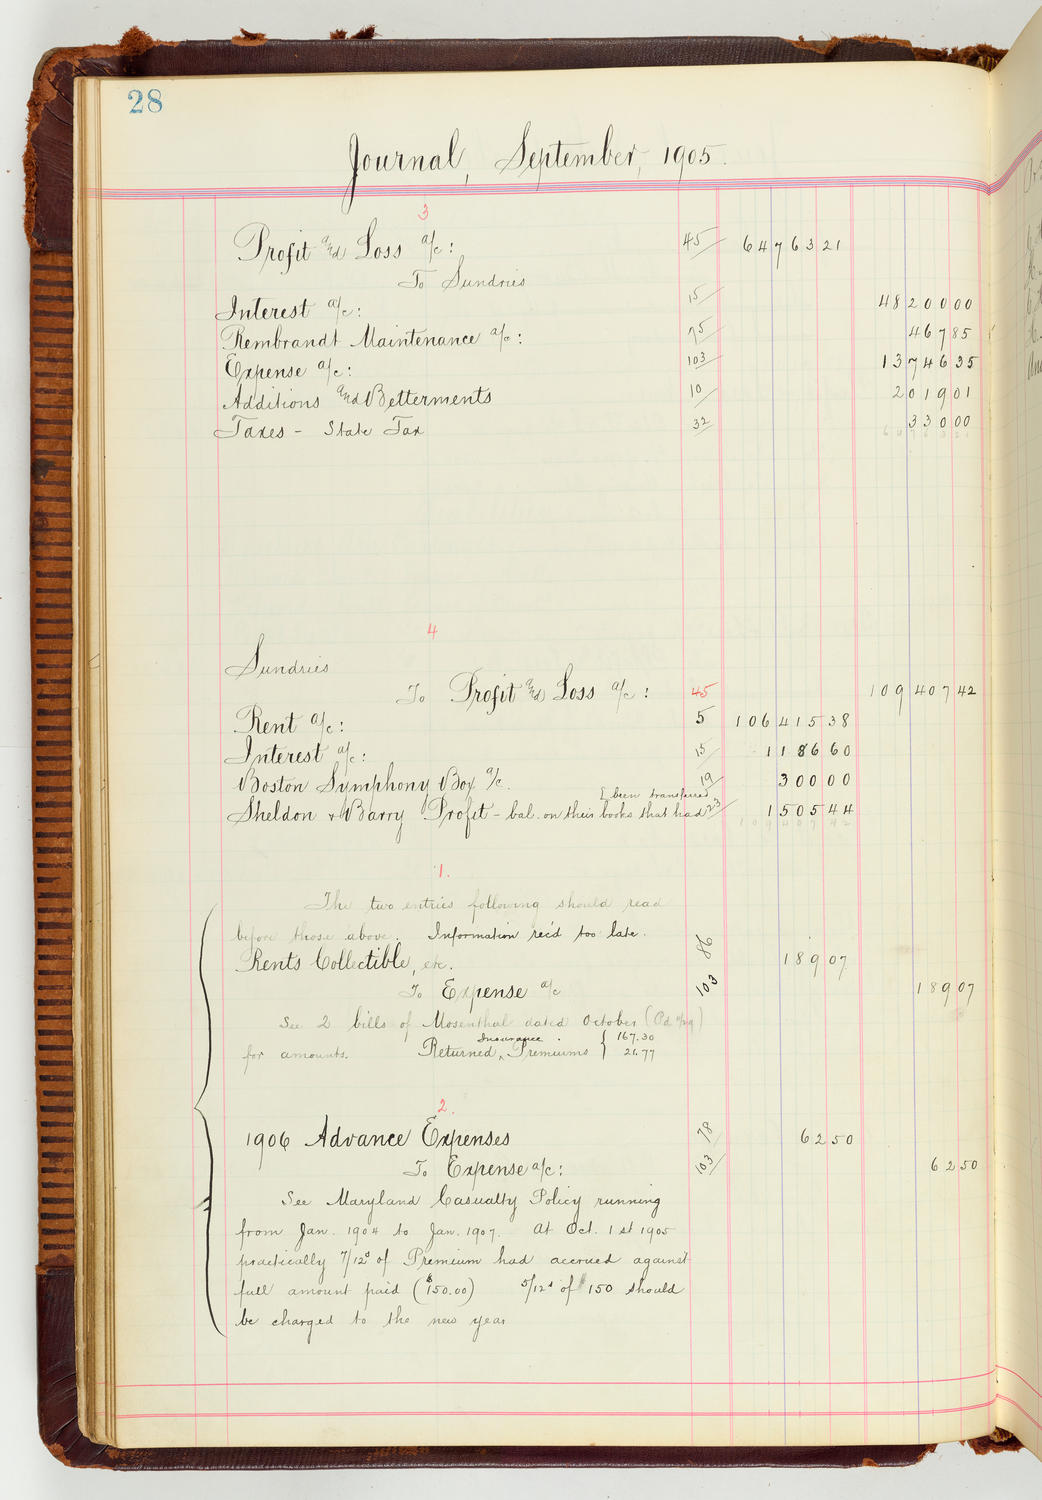 28
Journal, September, 1905.
3
Profit and Loss a/c: 45 64763 21
To Sundries
Interest a/c: 15 48200 00
Rembrandt Maintenance a/c: 75 467 85
Expense a/c: 103 13746 35
Additions and Betterments 10 2019 01
Taxes - State Tax 32 330 00
64763 21
4
Sundries
To Profit and Loss a/c: 45 109407 42
Rent a/c: 5 106415 38
Interest a/c: 15 1186 60
Boston Symphony Box a/c. 19 300 00
been transferred
Sheldon & Barry Profit - bal. on their books that had 23 1505 44
109407 42
1.
The two entries following should read
before those above. Information rec'd too late.
Rents Collectible, etc. 86 189 07
To Expense a/c 103 189 07
See 2 bills of Mosenthal dated October (Pd )
Insurance 167.30
for amounts. Returned Premiums 21.77
2.
1906 Advance Expenses 78 62 50
To Expense a/c: 103 62 50
See Maryland Casualty Policy running
from Jan. 1904 to Jan. 1907. At Oct. 1st 1905
practically 7/12s of Premium had accrued against
full amount paid ($150.00) 5/12s of $150 should
be charged to the new year